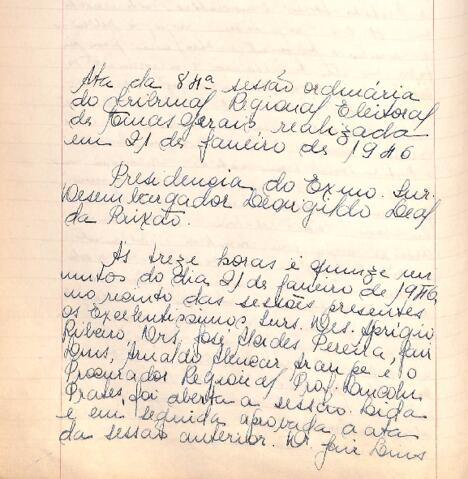 Ata da 84ª sessão ordinária
do Tribunal Regional Eleitoral
de Minas Gerais realizada
em 21 de janeiro de 1946
Presidencia do Exmo. Snr.
Desembargador Leovigildo Leal
da Paixão.
Ás treze horas e quinze mi
nutos do dia 21 de janeiro de 1946
no recinto das sessões presentes
os Excelentissimos Snrs. Des. Aprigio
Ribeiro, Drs. José Alcides Pereira, Jair
Lins, Arnaldo Alencar Araripe e o
Procurador Regional Prof. Lincoln
Prates, foi aberta a sessão. Lida
e em seguida aprovada a ata
da sessão anterior. Jair Lins